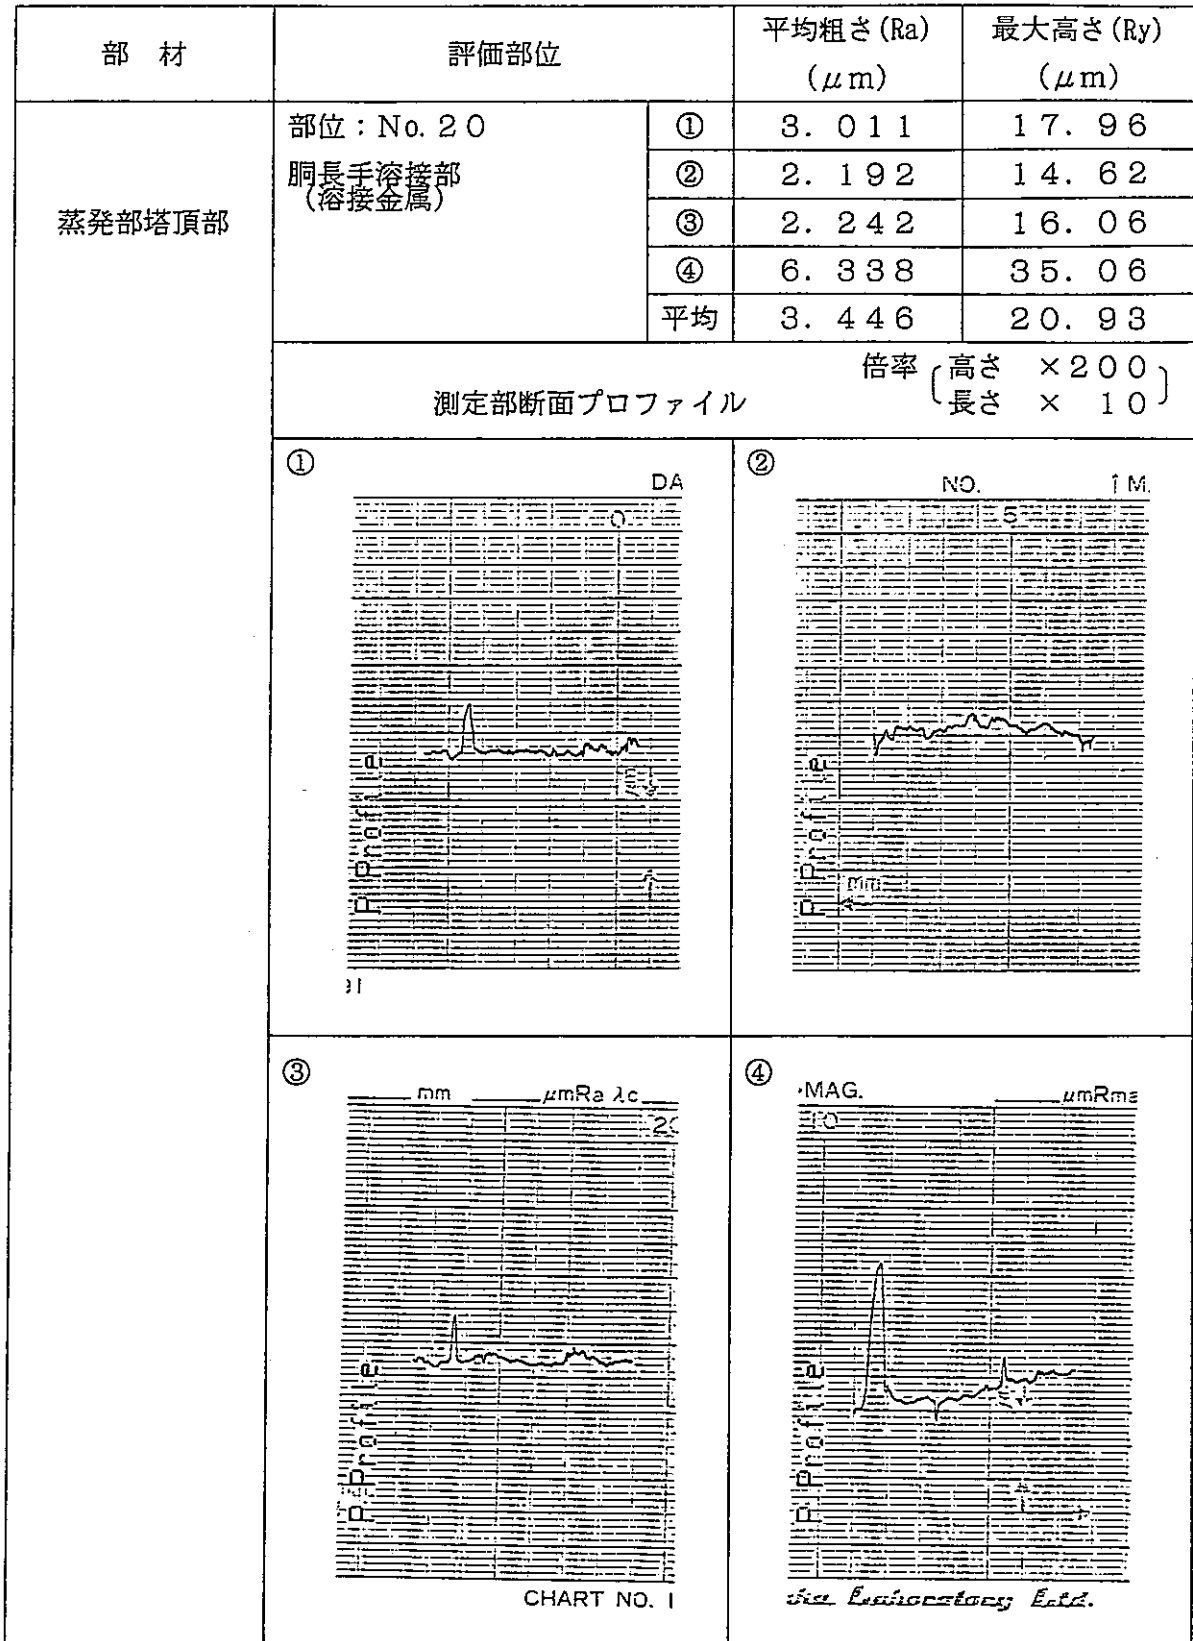 部 材
評価部位
平均粗さ(Ra)
(μm)
最大高さ(Ry)
(μm)
蒸発部塔頂部
部位：No. 20
胴長手溶接部
(溶接金属)
① 3. 011 17. 96
② 2. 192 14. 62
③ 2. 242 16. 06
④ 6. 338 35. 06
平均 3. 446 20. 93
測定部断面プロファイル
倍率
高さ ×200
長さ × 10
①
DA
0
P Profile
②
NO. 1 M.
5
P Profile
mm
③
mm μmRa λc
P Profile
CHART NO. 1
④
MAG. μmRma
10
P Profile
Laboratory Ltd.